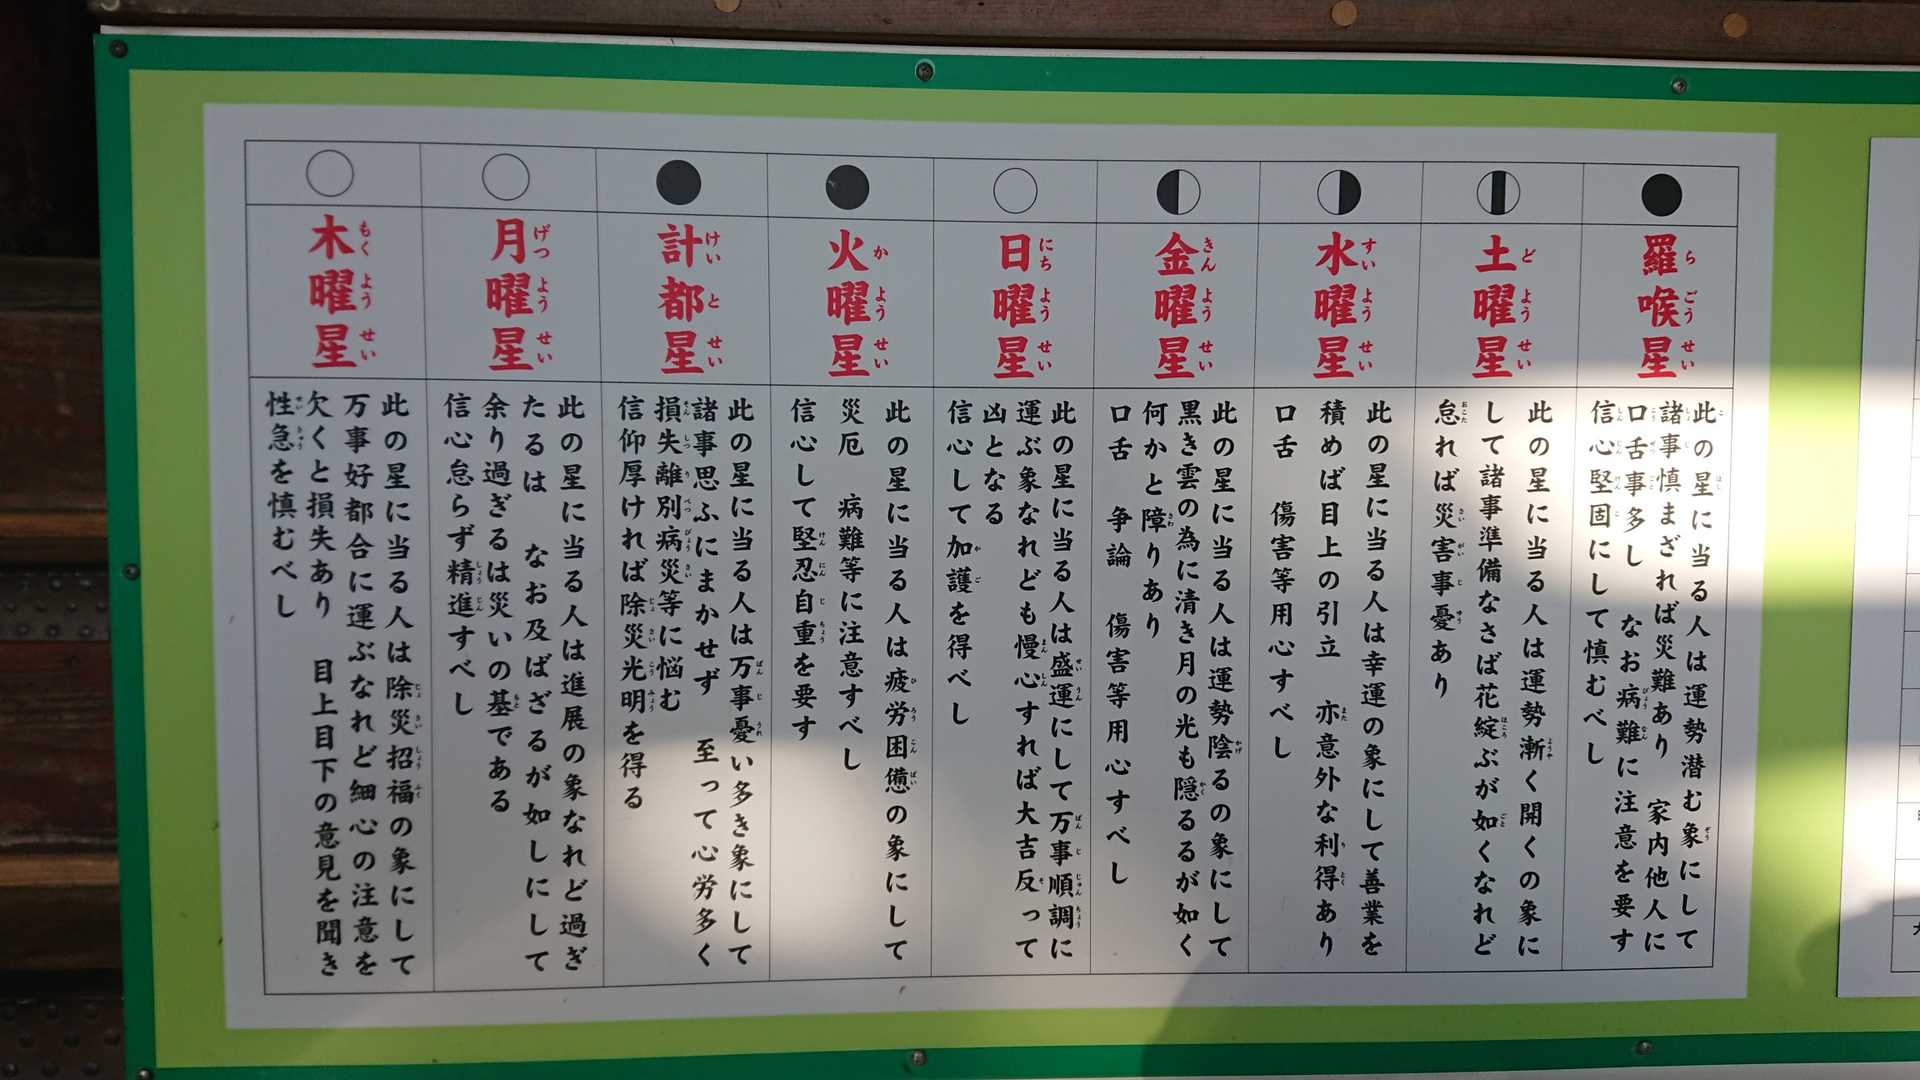 羅喉星
らごうせい
此の星に当る人は運勢潜む象にして
諸事慎まざれば災難あり　家内他人に
口舌事多し　なお病難に注意を要す
信心堅固にして慎むべし
土曜星
どようせい
此の星に当る人は運勢漸く開くの象に
して諸事準備なさば花綻ぶが如くなれど
怠れば災害事憂あり
水曜星
すいようせい
此の星に当る人は幸運の象にして善業を
積めば目上の引立　亦意外な利得あり
口舌　傷害等用心すべし
金曜星
きんようせい
此の星に当る人は運勢陰るの象にして
黒き雲の為に清き月の光も隠るるが如く
何かと障りあり
口舌　争論　傷害等用心すべし
日曜星
にちようせい
此の星に当る人は盛運にして万事順調に
運ぶ象なれども慢心すれば大吉反って
凶となる
信心して加護を得べし
火曜星
かようせい
此の星に当る人は疲労困憊の象にして
災厄　病難等に注意すべし
信心して堅忍自重を要す
計都星
けいとせい
此の星に当る人は万事憂い多き象にして
諸事思ふにまかせず　至って心労多く
損失離別病災等に悩む
信仰厚ければ除災光明を得る
月曜星
げつようせい
此の星に当る人は進展の象なれど過ぎ
たるは　なお及ばざるが如しにして
余り過ぎるは災いの基である
信心怠らず精進すべし
木曜星
もくようせい
此の星に当る人は除災招福の象にして
万事好都合に運ぶなれど細心の注意を
欠くと損失あり　目上目下の意見を聞き
性急を慎むべし